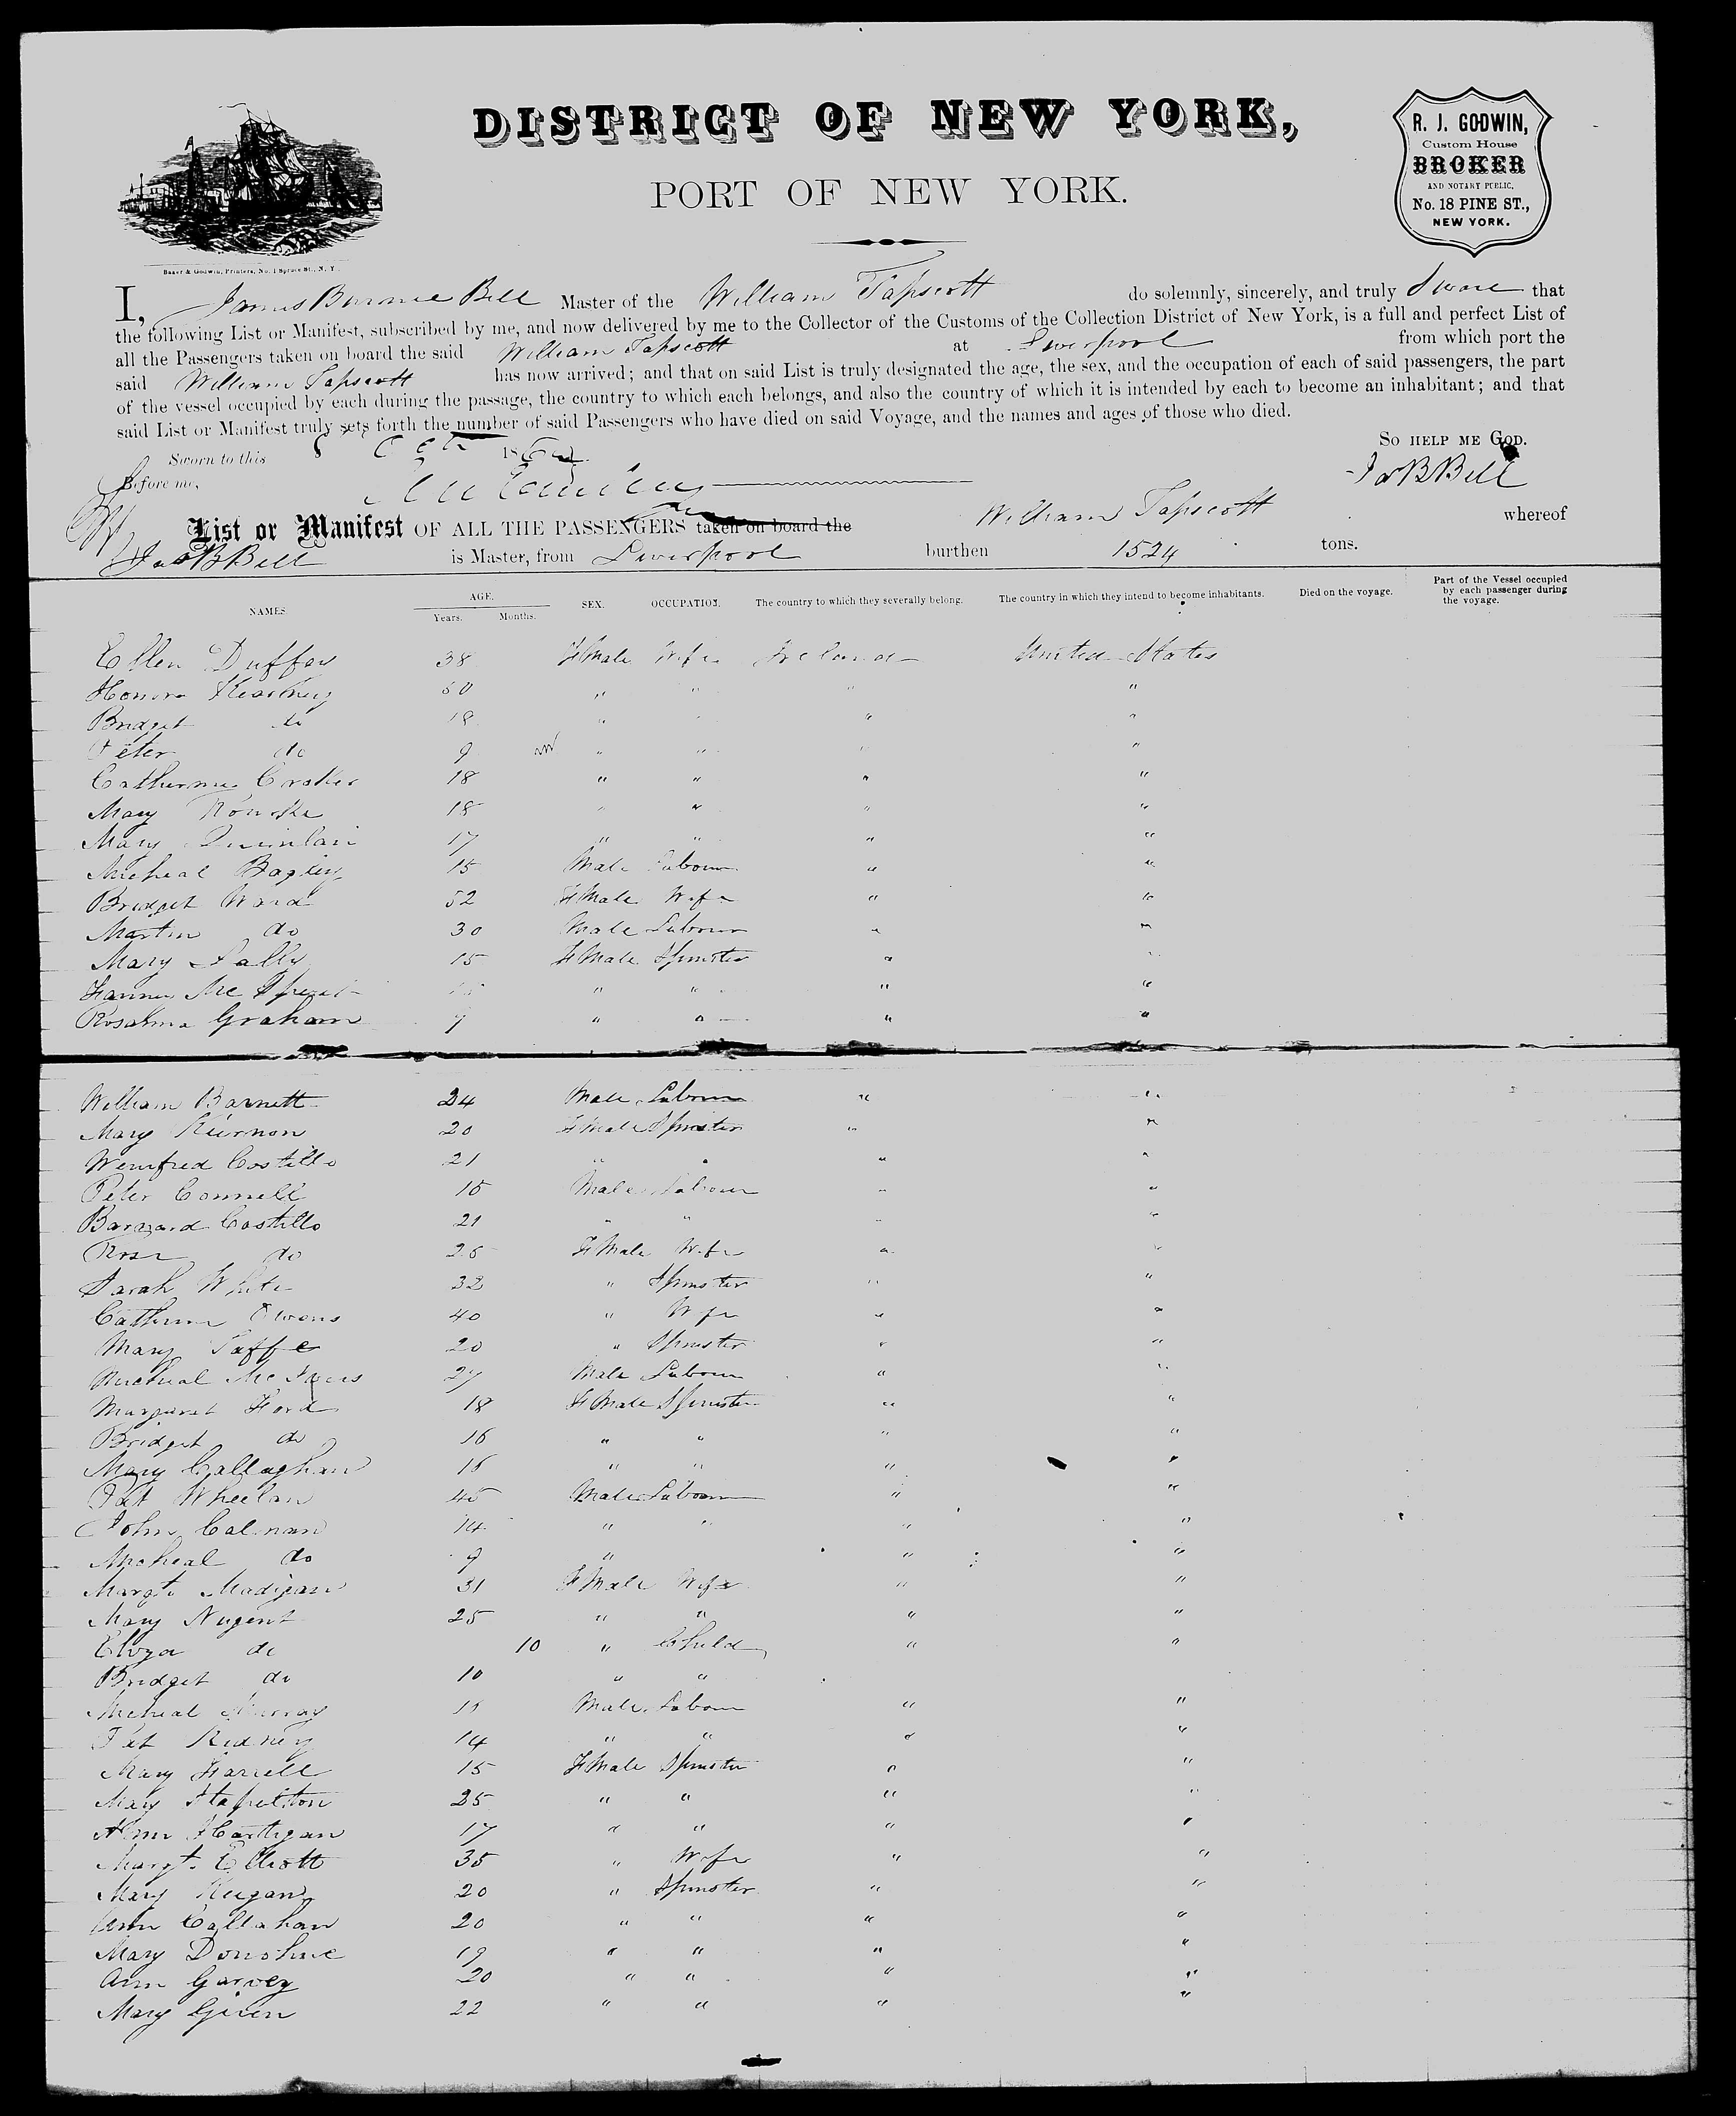 DISTRICT OF NEW YORK,
PORT OF NEW YORK.
R. J. GODWIN,
Custom House
BROKER
AND NOTARY PUBLIC,
No. 18 PINE ST.,
NEW YORK.
Baker & Godwin, Printers, No. 1 Spruce St., N. Y.
I, James Burnie Bell Master of the William Tapscott do solemnly, sincerely, and truly Swear that
the following List or Manifest, subscribed by me, and now delivered by me to the Collector of the Customs of the Collection District of New York, is a full and perfect List of
all the Passengers taken on board the said William Tapscott at Liverpool from which port the
said William Tapscott has now arrived; and that on said List is truly designated the age, the sex, and the occupation of each of said passengers, the part
of the vessel occupied by each during the passage, the country to which each belongs, and also the country of which it is intended by each to become an inhabitant; and that
said List or Manifest truly sets forth the number of said Passengers who have died on said Voyage, and the names and ages of those who died.
So HELP ME GOD.
Sworn to this 8 18
Before me, Jas B Bell
List or Manifest OF ALL THE PASSENGERS taken on board the William Tapscott whereof
Jas B Bell is Master, from Liverpool burthen 1524 tons.
NAMES. AGE. Years. Months. SEX. OCCUPATION. The country to which they severally belong. The country in which they intend to become inhabitants. Died on the voyage. Part of the Vessel occupied by each passenger during the voyage.
Ellen Duffey 38 FMale Wife Ireland United States
Honora Kearney 50 " " " "
Bridget do 18 " " " "
Peter do 9 m " " " "
Catherine Croker 18 " " " "
Mary Rourke 18 " " " "
Mary Quinlan 17 " " " "
Micheal Bagley 15 Male Labour " "
Bridget Ward 52 FMale Wife " "
Martin do 30 Male Labour " "
Mary Lally 15 FMale Spinster " "
Mc " " " "
Rosanna Graham 9 " " " "
William Barnett 24 Male Labour " "
Mary Kiernon 20 FMale Spinster " "
Wenifred Costillo 21 " " " "
Peter Connell 15 Male Labour " "
Barnard Costillo 21 " " " "
Rose do 26 FMale Wife " "
Sarah White 32 " Spinster " "
Catherine Owens 40 " Wife " "
Mary Taffe 20 " Spinster " "
Micheal Mc 27 Male Labour " "
Margaret Ford 18 FMale Spinster " "
Bridget do 16 " " " "
Mary Callaghan 16 " " " "
Pat Wheelan 45 Male Labour " "
John Calnan 14 " " " "
Micheal do 9 " " "
Margt. Madigan 31 FMale Wife " "
Mary Nugent 25 " " " "
Eliza do 10 " Child " "
Bridget do 10 " "
Micheal Murray Male Labour " "
Pat Kidney 14 " " " "
Mary Farrell 15 FMale Spinster " "
Mary Stapelton 25 " " " "
Ann Hartigan 17 " " " "
Margt. Elliott 35 " Wife " "
Mary Keegan 20 " Spinster " "
Ann Callahan 20 " " " "
Mary Donohue 19 " " " "
Ann Garvey 20 " " " "
Mary Green 22 " " " "